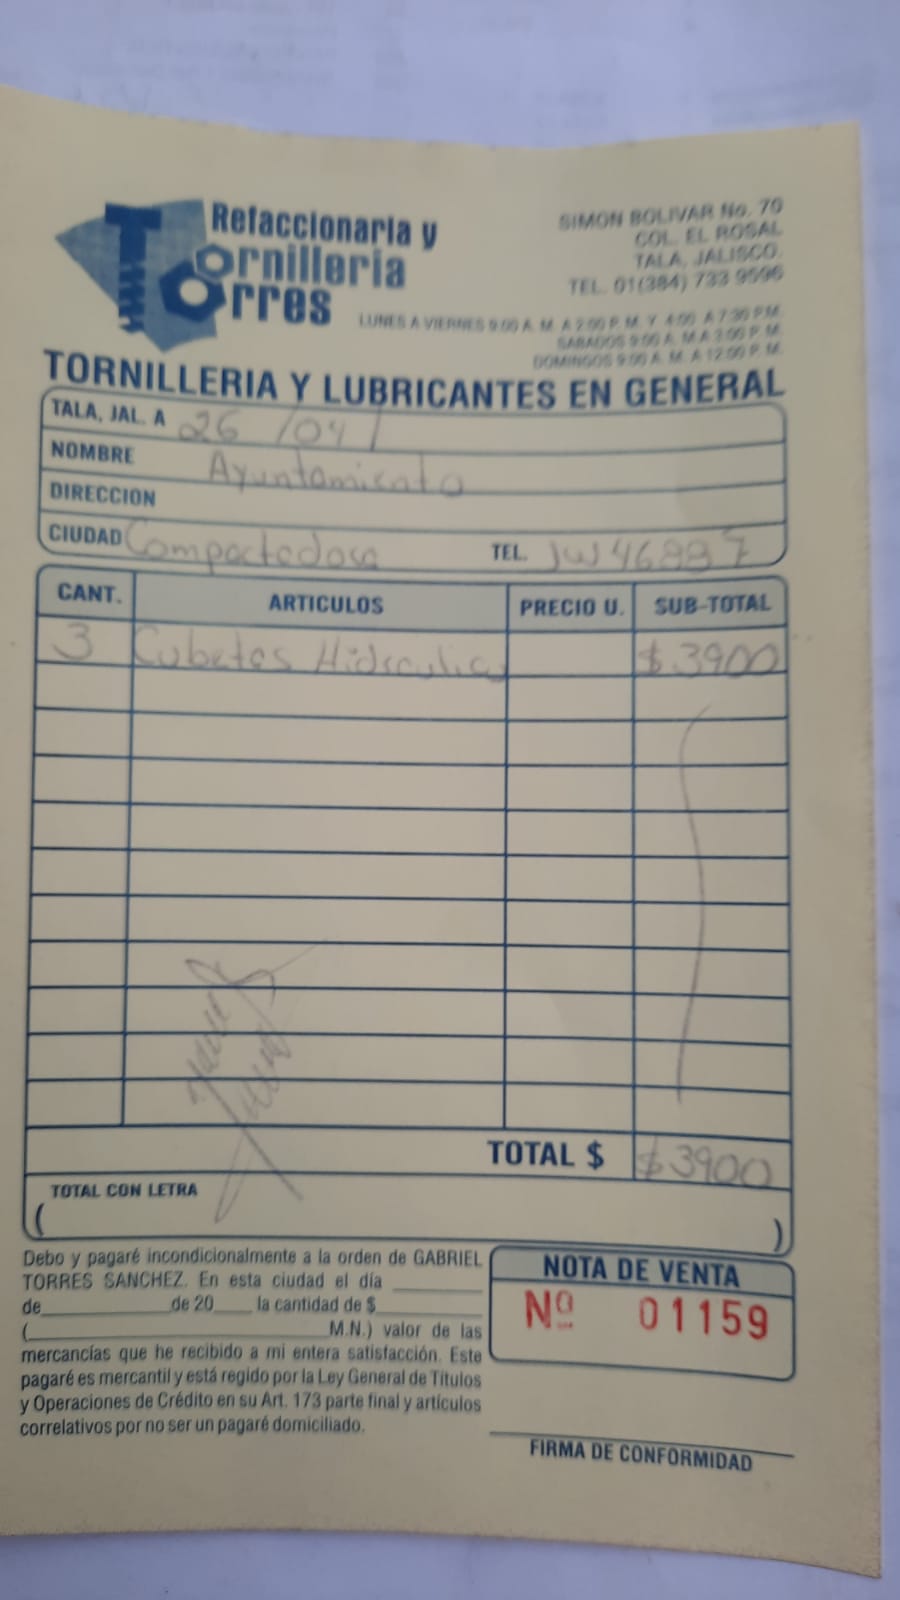 Refaccionaria y
Tornilleria
Torres
SIMON BOLIVAR No. 70
COL. EL ROSAL
TALA, JALISCO.
TEL. 01(384) 733 9596
LUNES A VIERNES 9:00 A. M. A 2:00 P. M. Y 4:00 A 7:30 P.M.
SABADOS 9:00 A. M. A 3:00 P. M.
DOMINGOS 9:00 A. M. A 12:00 P. M.
TORNILLERIA Y LUBRICANTES EN GENERAL
TALA, JAL. A 26 /04/
NOMBRE Ayuntamiento
DIRECCION
CIUDAD Compactadora TEL. JW46887
CANT. ARTICULOS PRECIO U. SUB-TOTAL
3 Cubetas Hidraulico $3900
TOTAL $ $3900
TOTAL CON LETRA
( )
Debo y pagaré incondicionalmente a la orden de GABRIEL
TORRES SANCHEZ. En esta ciudad el día ________
de____________de 20____ la cantidad de $__________
(______________________________M.N.) valor de las
mercancías que he recibido a mi entera satisfacción. Este
pagaré es mercantil y está regido por la Ley General de Títulos
y Operaciones de Crédito en su Art. 173 parte final y artículos
correlativos por no ser un pagaré domiciliado.
NOTA DE VENTA
Nº 01159
FIRMA DE CONFORMIDAD